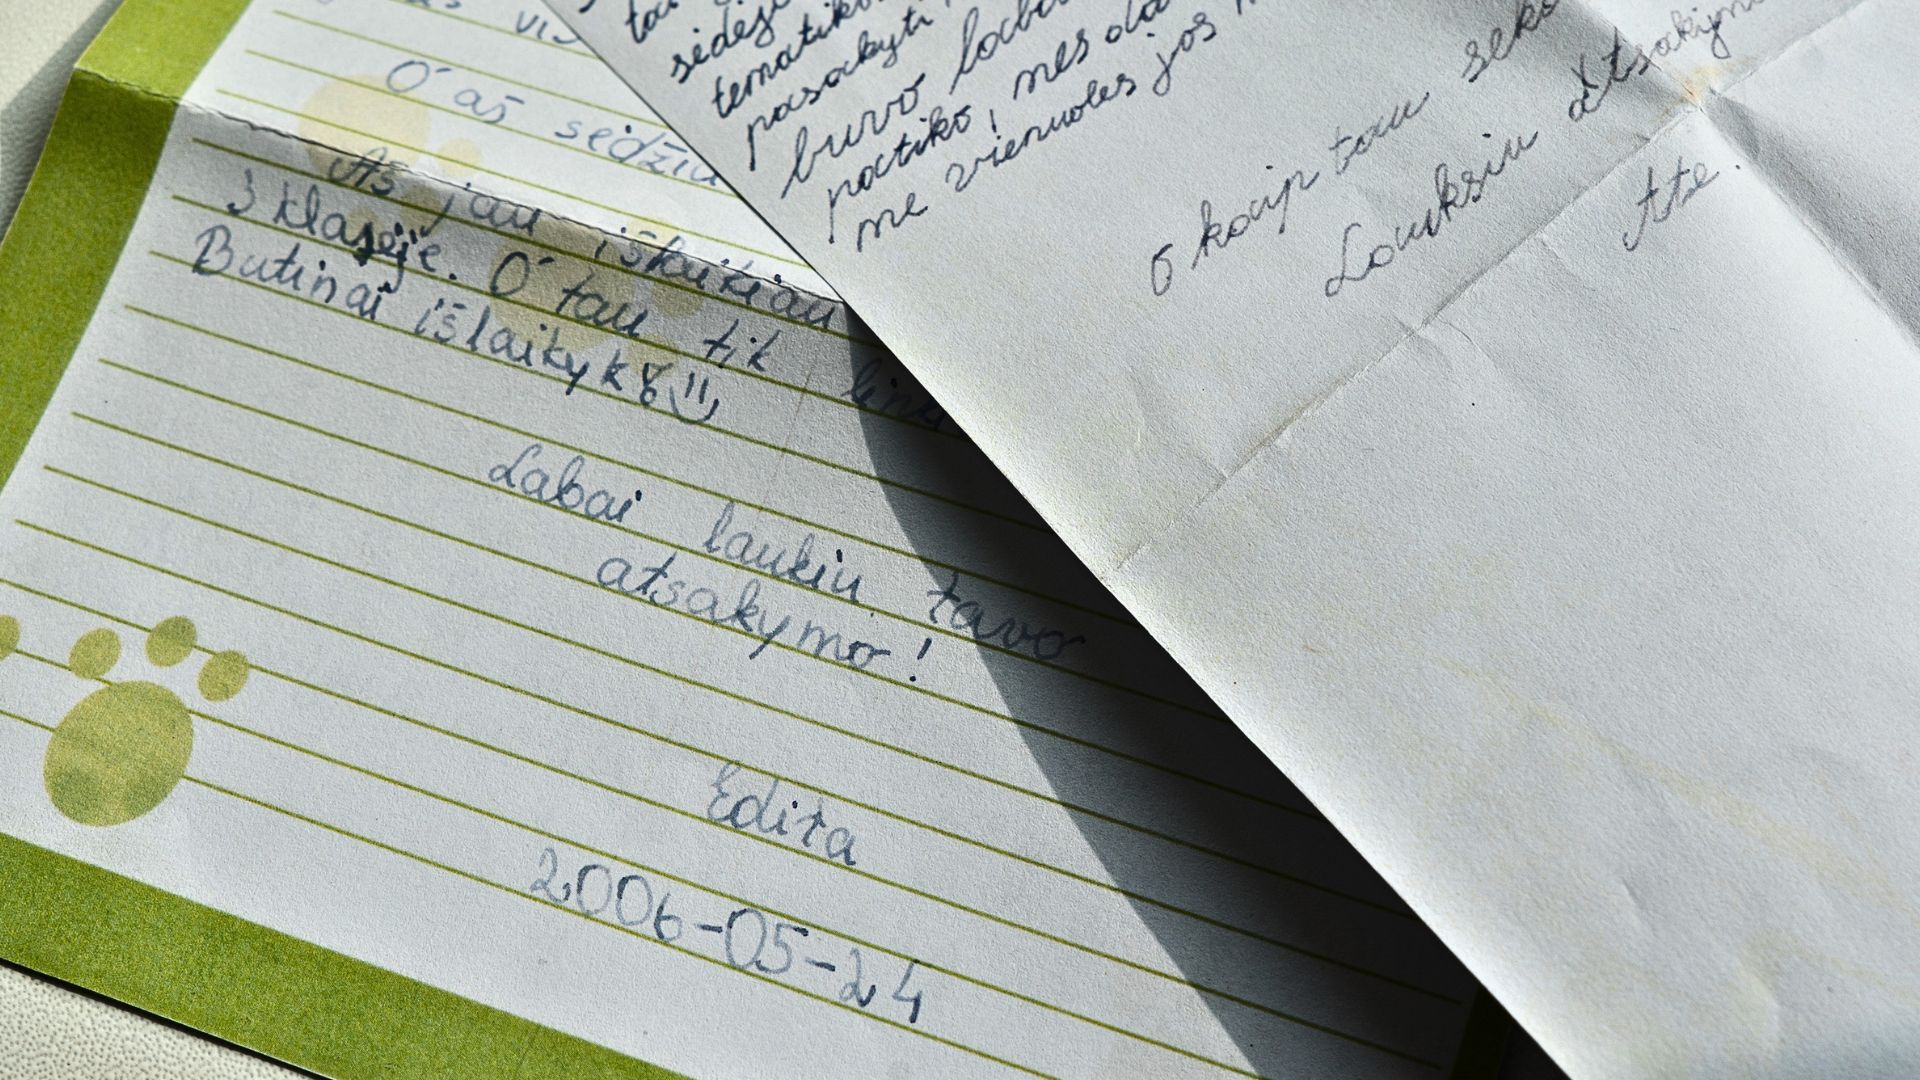 O aš sėdžiu
Aš jau išlaikiau
3 klasėje. O tau tik linkiu
Butinai išlaikyk
Labai laukiu tavo
atsakymo!
Edita
2006-05-24
tau
tematiko
pasakyti,
buvo laba
patiko, mes da
me vienuoles jos
O kaip tau sek
Lauksiu atsakymo
Ate.